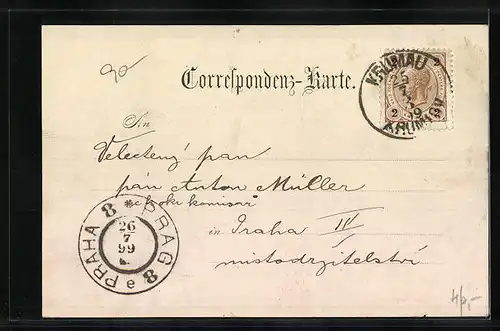 90
Correspondenz-Karte.
KRUMAU
25
7
99
KRUMLOV
2
2
An
Velectený pan
pán Anton Müller
komisař
in Praha IV
místodržitelství
PRAHA 8 * PRAG 8
26
7
99
a